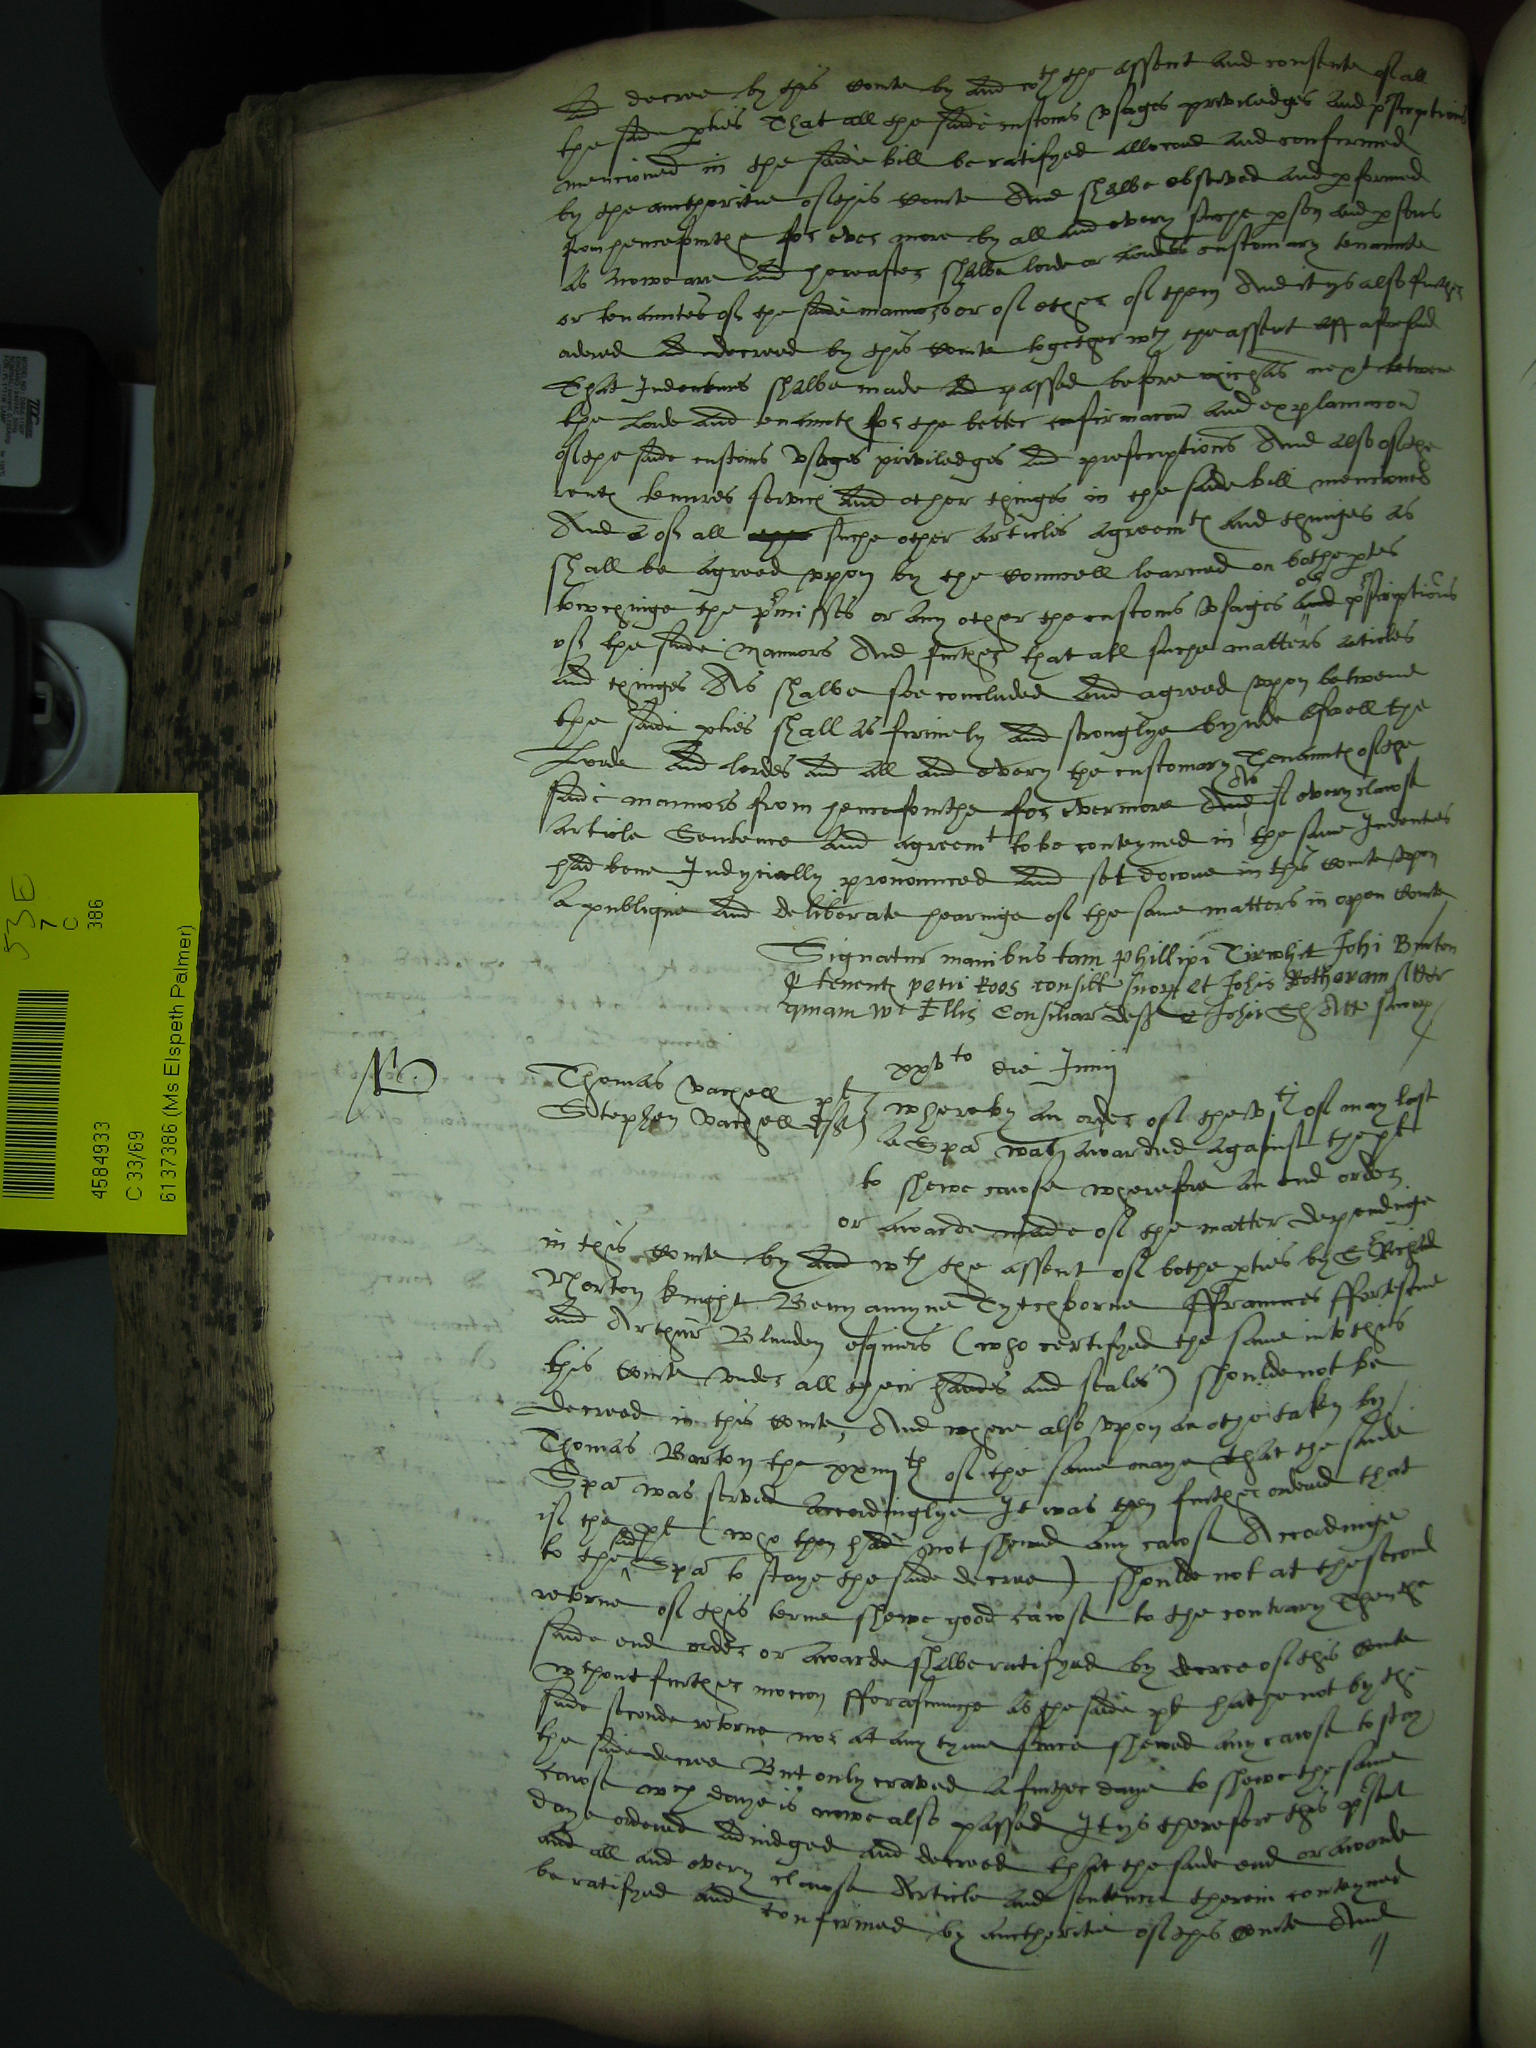 and decree by this Courte by and wth the assent and consente of all
the said pties That all the saide customs vsages priviledges and pscriptions
mencioned in the saide bill be ratifyed allowed and confirmed
by the aucthoritie of this Courte And shalbe observed and pformed
from hencefourthe for ever more by all and every suche pson and psons
as nowe are and hereafter shalbe lorde or lordes customary tenaunte
or tenauntes of the saide mannors or of ether of them And it ys also further
ordered and decreed by this Courte together wth the assent aforesaid
That Indentures shalbe made and passed before michas next betwene
the lorde and tenauntes for the better confirmacon and explanacon
of the saide customs vsages priviledges and prescriptions And also of the
rents tenures services and other thinges in the saide bill mencioned
And of all suche other articles agreemts and thinges as
shall be agreed vpon by the Counsell learned on bothe ptes
towchinge the pmisses or any other the customs vsages or and pscriptions
of the saide Mannors And further that all suche matters articles
and thinges As shalbe soe concluded and agreed vpon betwene
the saide pties shall as firmely and stronglye bynde aswell the
Lorde and lordes and all and every the customary Tenaunts of the
saide mannors from hencefourthe for evermore And As if every clawse
article Sentence and agreemt to be conteyned in the same Indentures
had bene Iudycially pronounced and set downe in this Courte vpon
a publique and deliberate hearinge of the same matters in open Courte
Signatur manibus tam phillipi Tirwhit Johi Burton
tenent petri Roos consill suor et Johis Rotheram Atter
quam Wi Ellis Consiliar deff et Johi Atte suor
xxvto die Junij
Thomas vachell plt
Stephen vachell deft
whereby an order of the vth of may last
a Spa was awarded against the plt
to shewe cawse wherefore an end order
or awarde made of the matter dependinge
in this Courte by and wth the assent of bothe pties by Sr Richd
Norton knight Beniamyne Tytchborne ffraunces ffortescue
and Arthur Blunden esquiers (who certifyed the same into this
this Courte vnder all their handes and seales) shoulde not be
decreed in this Courte, And where also vpon an othe taken by
Thomas Barton the xxiiijth of the same maye that the saide
Spa was served accordinglye It was then further ordered that
if the plt (who then had not shewed any cawse Accordinge
to the said Spa to staye the saide decree) shoulde not at the second
retorne of this terme shewe good cawse to the contrary Then the
saide end order or awarde shalbe ratifyed by decree of this Courte
wthout further mocion fforasmuche as the saide plt hathe not by the
saide seconde retorne nor at any tyme since shewed any cawse to stay
the saide decree But only craved a further daye to shewe the same
cawse wch daye is nowe also passed It ys therefore this pset
daye ordered adiudged and decreed that the saide end or awarde
and all and every clawse Article and sentence therein conteyned
be ratifyed and confirmed by aucthoritie of this Courte And
53E
7
C
386
4584933
C 33/69
6137386 (Ms Elspeth Palmer)